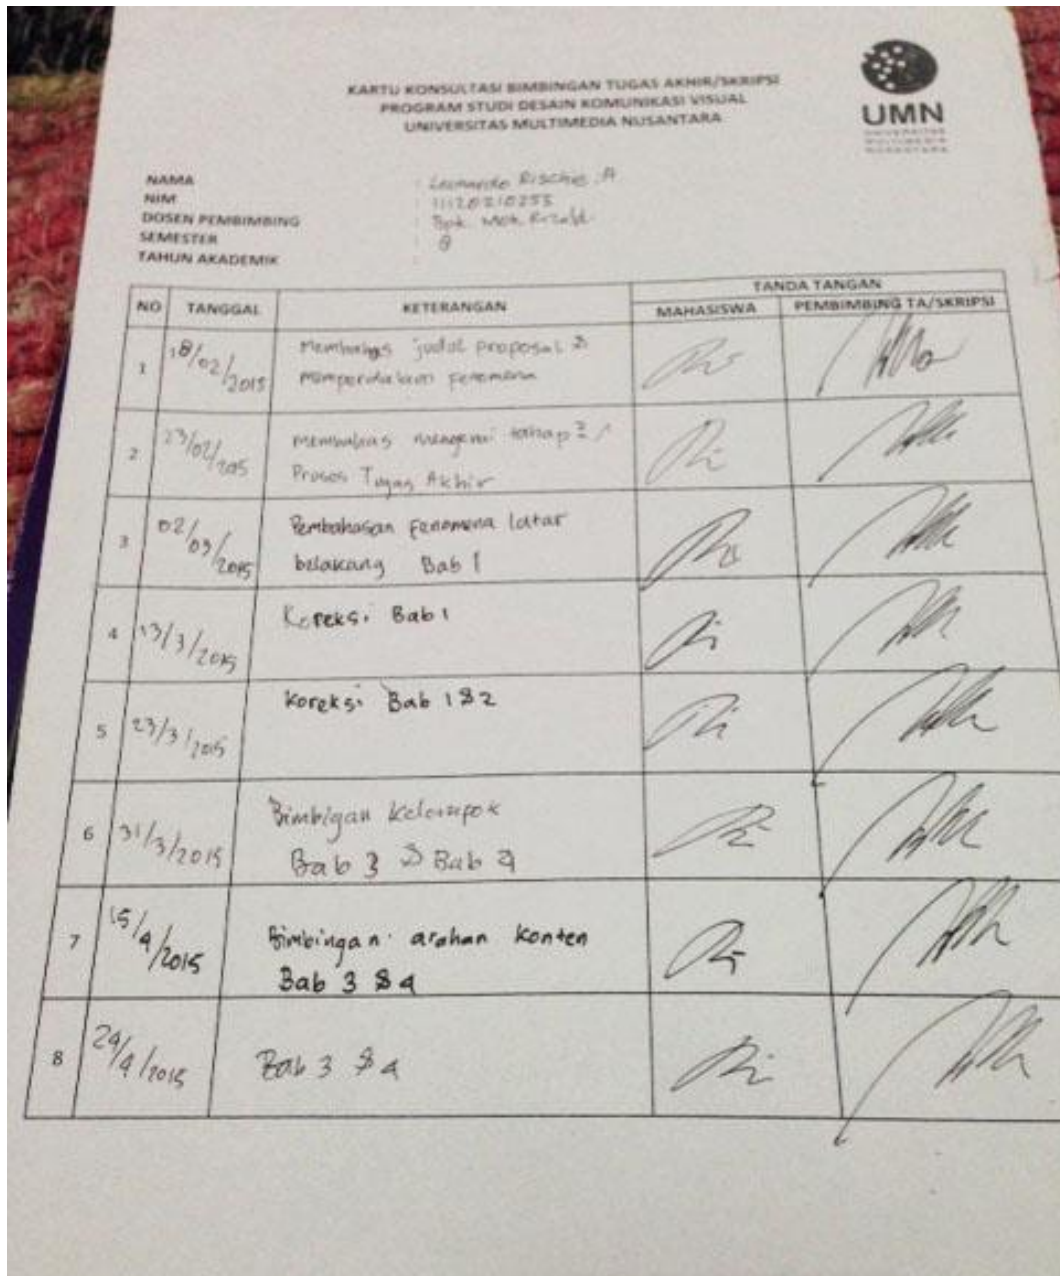 KARTU KONSULTASI BIMBINGAN TUGAS AKHIR/SKRIPSI
PROGRAM STUDI DESAIN KOMUNIKASI VISUAL
UNIVERSITAS MULTIMEDIA NUSANTARA
UMN
UNIVERSITAS
MULTIMEDIA
NUSANTARA
NAMA : Leonardo Rischie .A
NIM : 11120210255
DOSEN PEMBIMBING : Bpk. Moh. Rizaldi
SEMESTER : 8
TAHUN AKADEMIK :
NO TANGGAL KETERANGAN TANDA TANGAN
MAHASISWA PEMBIMBING TA/SKRIPSI
1 18/02/2015 Membahas judul proposal &
memperdalam fenomena
2 23/02/2015 membahas mengenai tahap2 /
Proses Tugas Akhir
3 02/03/2015 Pembahasan fenomena latar
belakang Bab 1
4 13/3/2015 Koreksi Bab 1
5 23/3/2015 Koreksi Bab 1 & 2
6 31/3/2015 Bimbigan Kelompok
Bab 3 & Bab 4
7 15/4/2015 Bimbingan arahan konten
Bab 3 & 4
8 29/4/2015 Bab 3 & 4